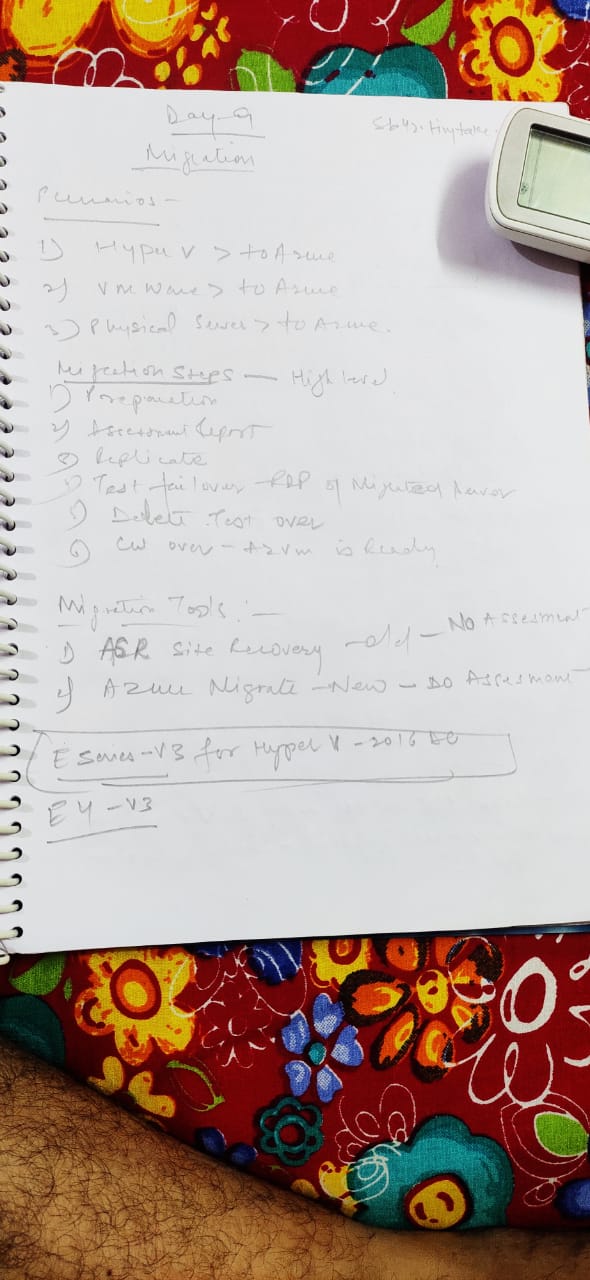 Day-9
Migration
Scenarios -
1) Hyper V > to Azure
2) VM Ware > to Azure
3) Physical Server > to Azure.
Migration Steps - High level.
1) Preparation
2) Assessment Report
3) Replicate
4) Test failover - RDP of Migrated Server
5) Delete Test over
6) over - AzVm is Ready
Migration Tools :-
1) ASR Site Recovery - old - No Assesment
2) Azure Migrate - New - Do Assesment
E Series-V3 for Hyper V - 2016 DC
E4 - V3